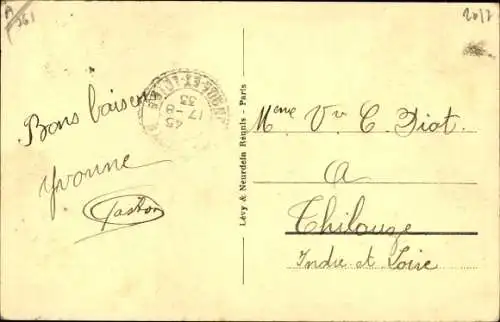 A
361
2017
Bons baisers
Yvonne
Gaston
17 - 8
33
Lévy & Neurdein Réunis - Paris
Mme Vve C. Diot
A
Thilouze
Indre et Loire